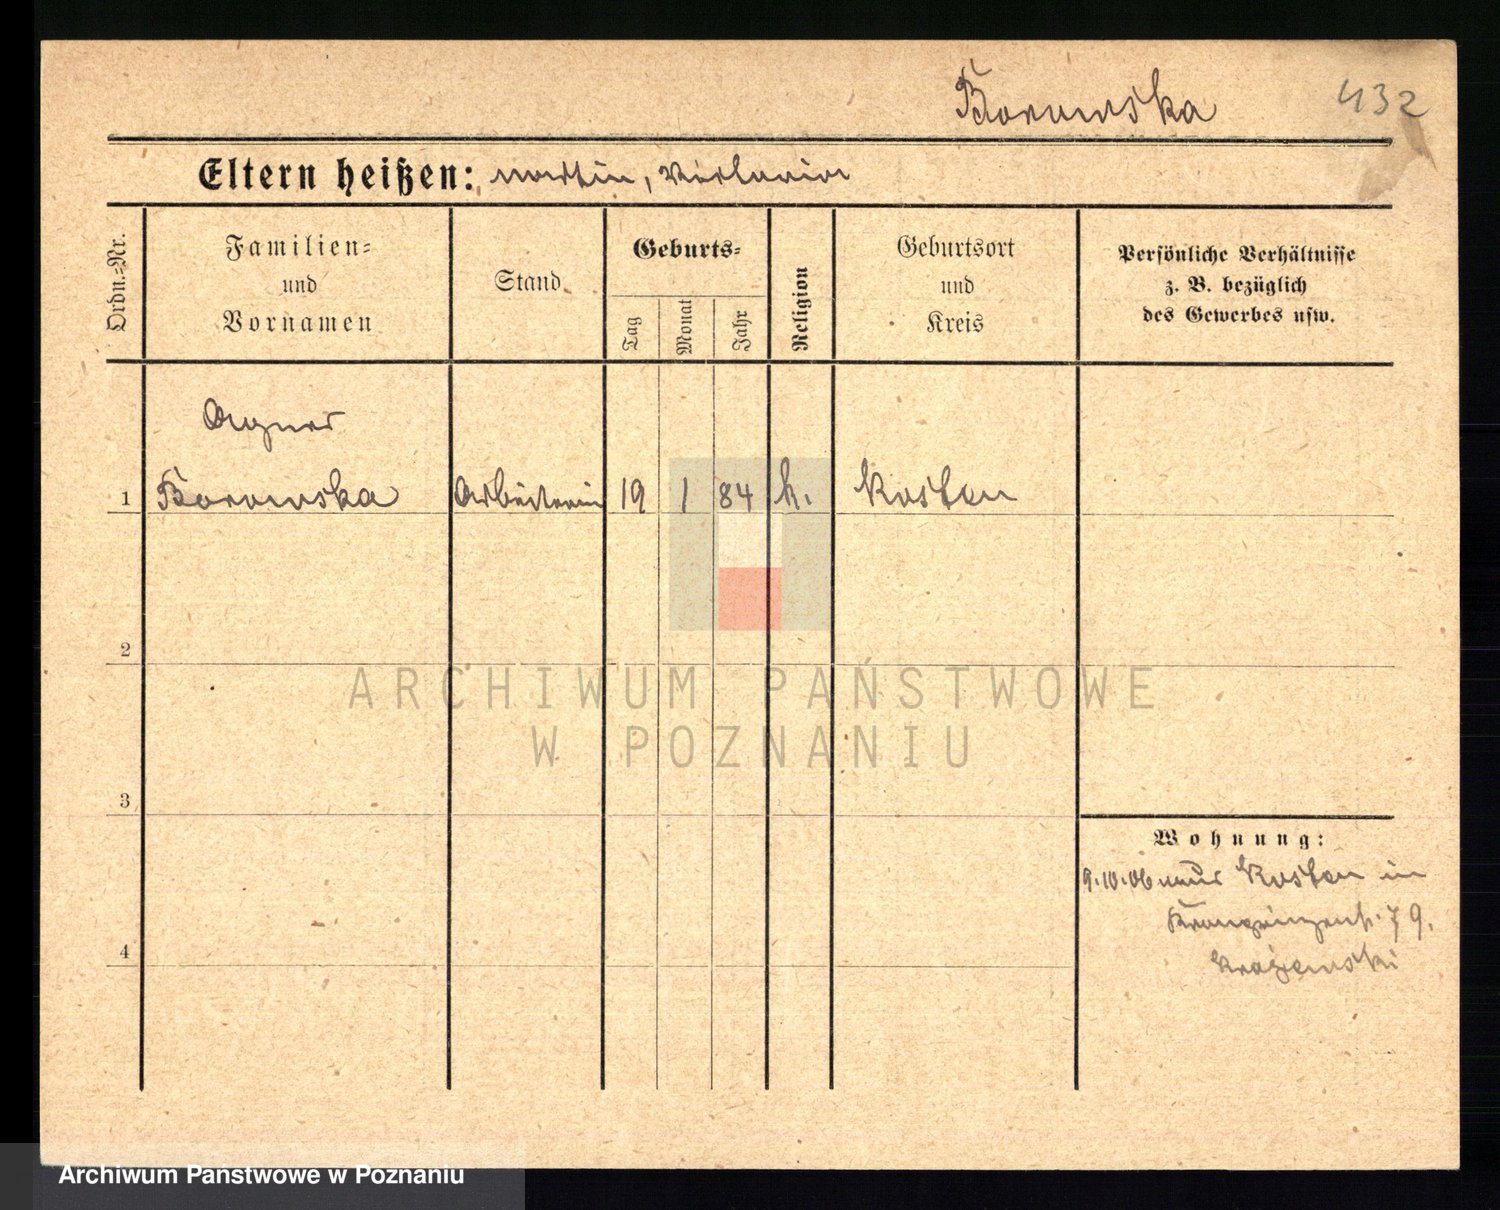 Borowska
432
Eltern heißen: Martin, Viktoria
Ordn.=Nr.
Familien=
und
Vornamen
Stand
Geburts=
Tag
Monat
Jahr
Religion
Geburtsort
und
Kreis
Persönliche Verhältnisse
z. B. bezüglich
des Gewerbes usw.
Agnes
1 Borowska Arbeiterin 19 1 84 k. Kosten
2
ARCHIWUM PAŃSTWOWE
W POZNANIU
3
Wohnung:
9.10.06 aus Kosten in
Kronprinzenst. 79.
4
Archiwum Państwowe w Poznaniu